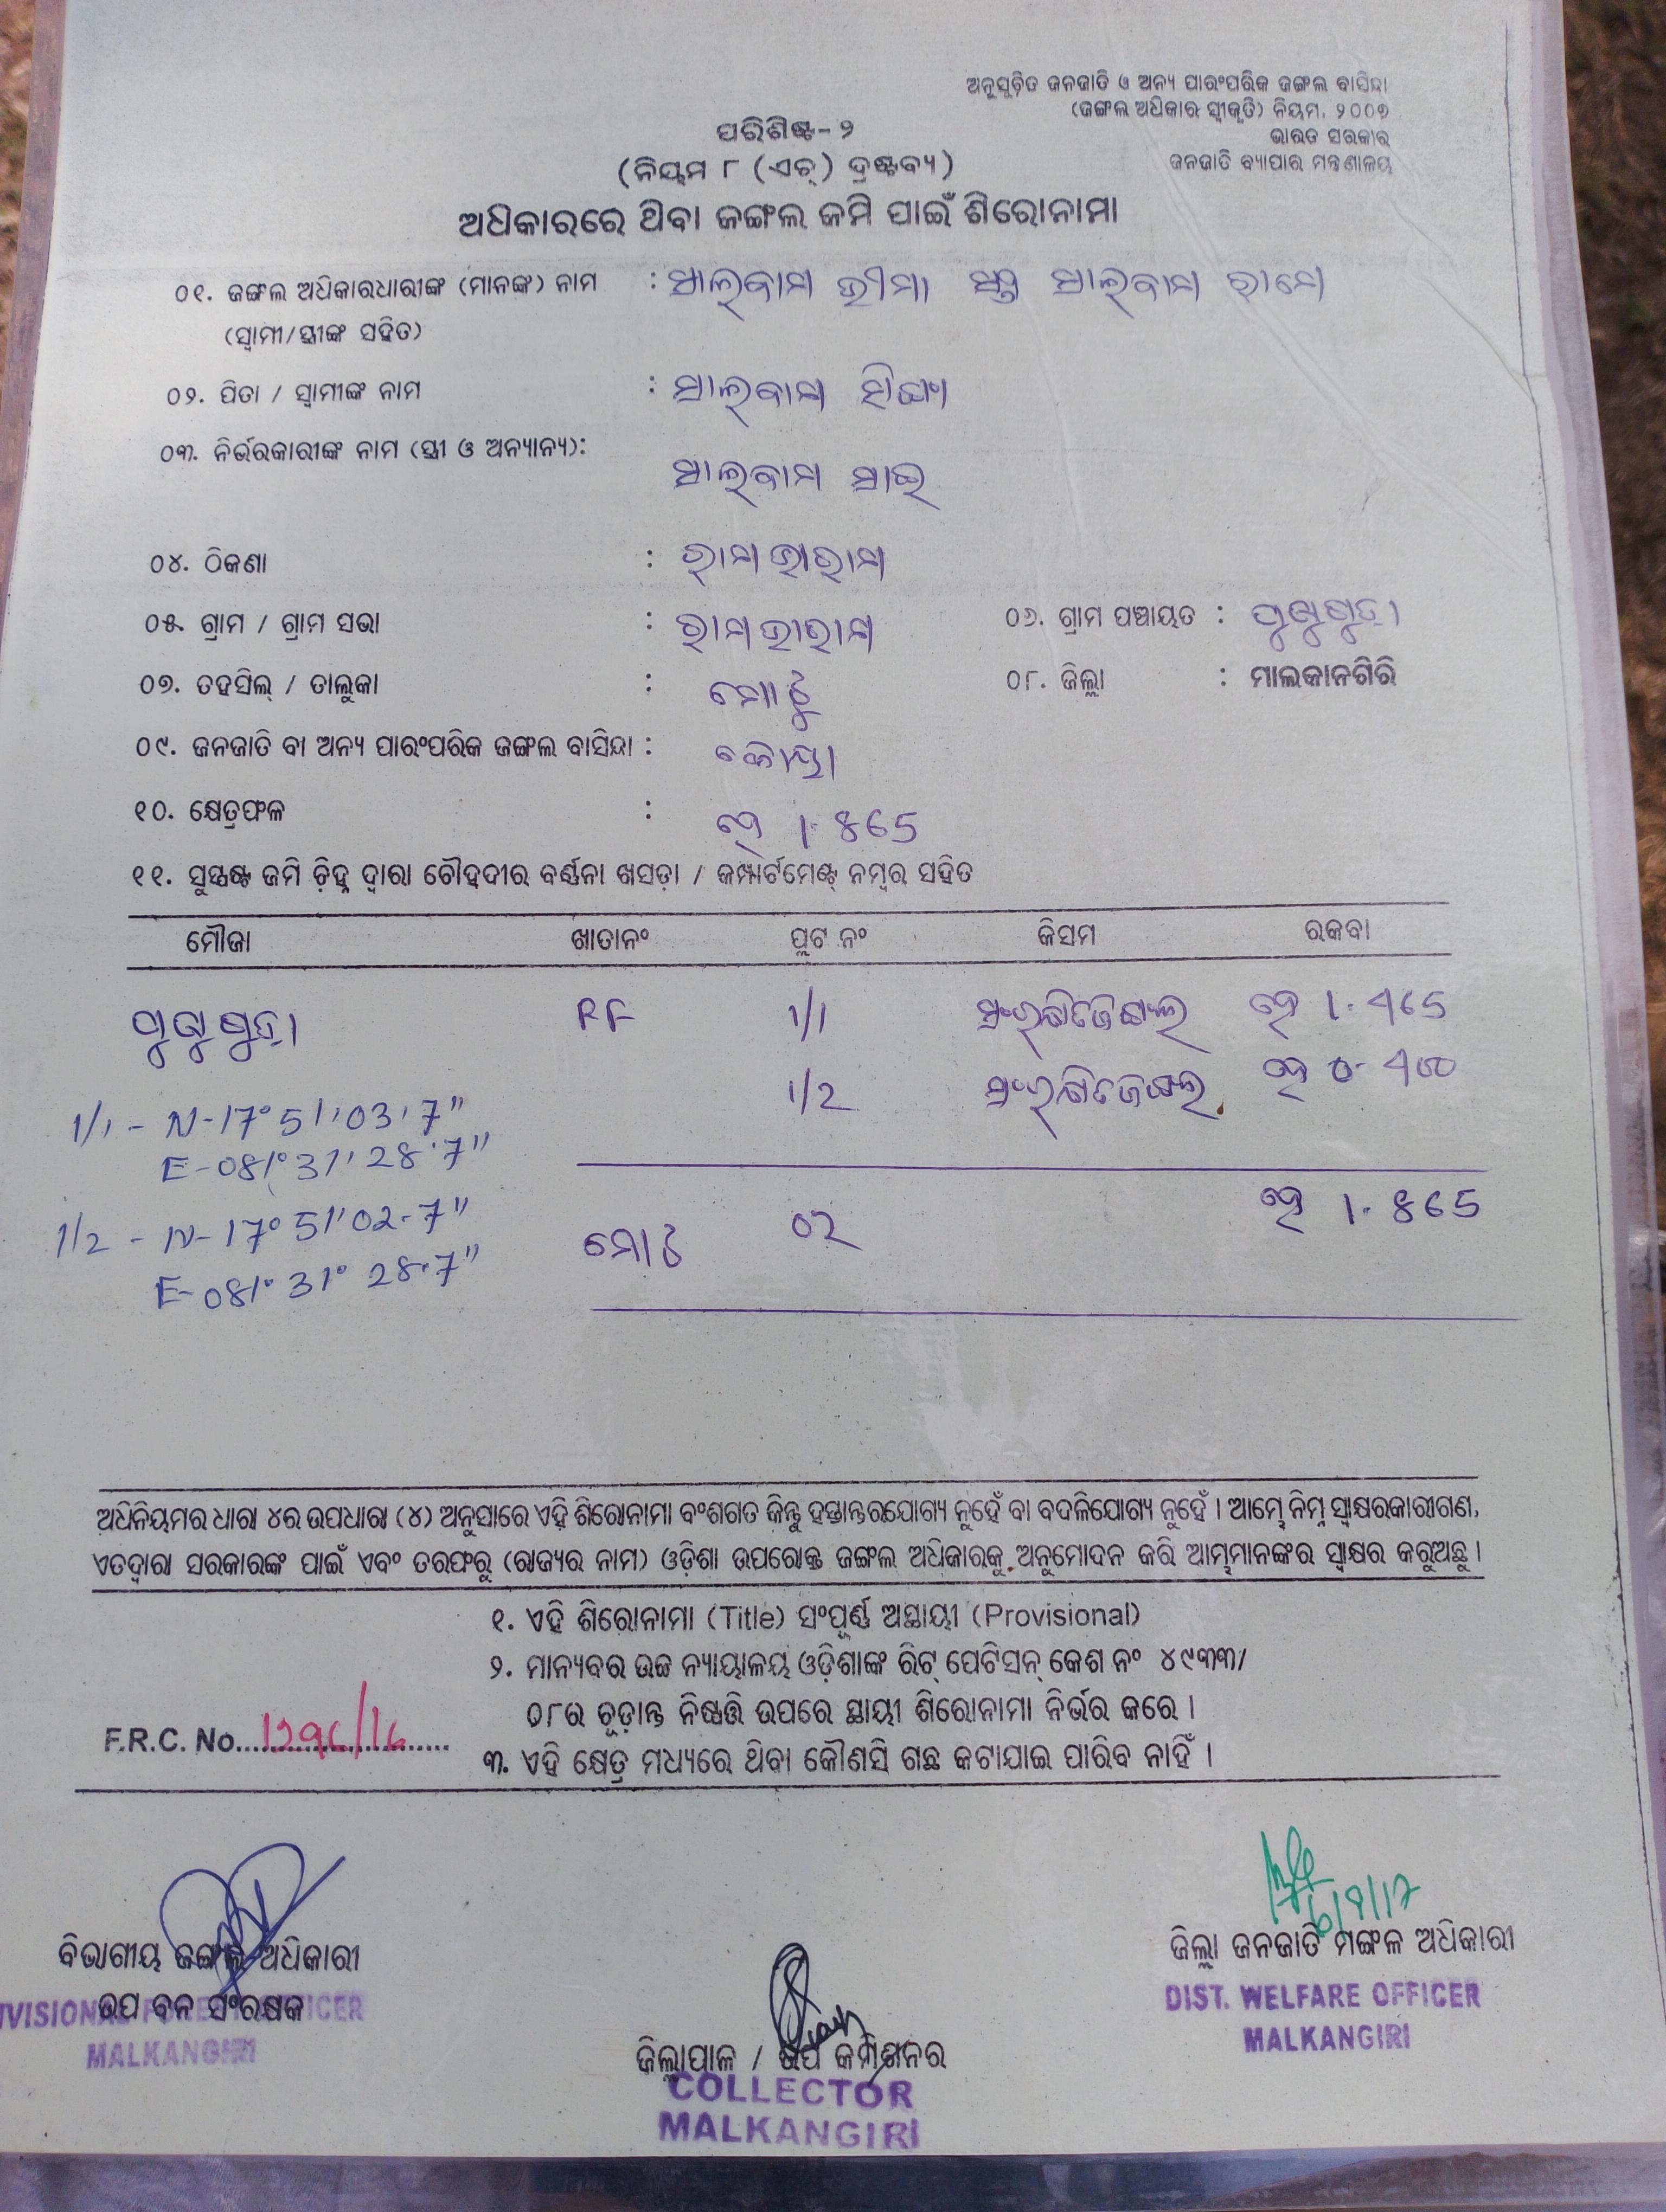 ଅନୁସୂଚିତ ଜନଜାତି ଓ ଅନ୍ୟ ପାରଂପରିକ ଜଙ୍ଗଲ ବାସିନ୍ଦା
(ଜଙ୍ଗଲ ଅଧିକାର ସ୍ୱୀକୃତି) ନିୟମ, ୨୦୦୭
ଭାରତ ସରକାର
ଜନଜାତି ବ୍ୟାପାର ମନ୍ତ୍ରଣାଳୟ
ପରିଶିଷ୍ଟ-୨
(ନିୟମ ୮ (ଏଚ୍) ଦ୍ରଷ୍ଟବ୍ୟ)
ଅଧିକାରରେ ଥିବା ଜଙ୍ଗଲ ଜମି ପାଇଁ ଶିରୋନାମା
୦୧. ଜଙ୍ଗଲ ଅଧିକାରଧାରୀଙ୍କ (ମାନଙ୍କ) ନାମ : ଭୀମା
(ସ୍ୱାମୀ/ସ୍ତ୍ରୀଙ୍କ ସହିତ)
୦୨. ପିତା / ସ୍ୱାମୀଙ୍କ ନାମ :
୦୩. ନିର୍ଭରକାରୀଙ୍କ ନାମ (ସ୍ତ୍ରୀ ଓ ଅନ୍ୟାନ୍ୟ):
୦୪. ଠିକଣା :
୦୫. ଗ୍ରାମ / ଗ୍ରାମ ସଭା : ୦୬. ଗ୍ରାମ ପଞ୍ଚାୟତ :
୦୭. ତହସିଲ୍ / ତାଲୁକା : ମୋଟୁ ୦୮. ଜିଲ୍ଲା : ମାଲକାନଗିରି
୦୯. ଜନଜାତି ବା ଅନ୍ୟ ପାରଂପରିକ ଜଙ୍ଗଲ ବାସିନ୍ଦା : କୋୟା
୧୦. କ୍ଷେତ୍ରଫଳ : ହେ 1.865
୧୧. ସୁସ୍ପଷ୍ଟ ଜମି ଚିହ୍ନ ଦ୍ୱାରା ଚୌହଦୀର ବର୍ଣ୍ଣନା ଖସଡ଼ା / କମ୍ପାର୍ଟମେଣ୍ଟ୍ ନମ୍ବର ସହିତ
ମୌଜା ଖାତାନଂ ପ୍ଲଟ ନଂ କିସମ ରକବା
RF 1/1 ହେ 1.465
1/2 ହେ 0.400
1/1 - N-17° 51' 03.7"
E-081° 31' 28.7"
1/2 - N-17° 51' 02.7"
E-081° 31° 28.7"
ମୋଟ 02 ହେ 1.865
ଅଧିନିୟମର ଧାରା ୪ର ଉପଧାରା (୪) ଅନୁସାରେ ଏହି ଶିରୋନାମା ବଂଶଗତ କିନ୍ତୁ ହସ୍ତାନ୍ତରଯୋଗ୍ୟ ନୁହେଁ ବା ବଦଳିଯୋଗ୍ୟ ନୁହେଁ । ଆମ୍ଭେ ନିମ୍ନ ସ୍ୱାକ୍ଷରକାରୀଗଣ,
ଏତଦ୍ୱାରା ସରକାରଙ୍କ ପାଇଁ ଏବଂ ତରଫରୁ (ରାଜ୍ୟର ନାମ) ଓଡ଼ିଶା ଉପରୋକ୍ତ ଜଙ୍ଗଲ ଅଧିକାରକୁ ଅନୁମୋଦନ କରି ଆମ୍ଭମାନଙ୍କର ସ୍ୱାକ୍ଷର କରୁଅଛୁ ।
୧. ଏହି ଶିରୋନାମା (Title) ସଂପୂର୍ଣ୍ଣ ଅସ୍ଥାୟୀ (Provisional)
୨. ମାନ୍ୟବର ଉଚ୍ଚ ନ୍ୟାୟାଳୟ ଓଡ଼ିଶାଙ୍କ ରିଟ୍ ପେଟିସନ୍ କେଶ ନଂ ୪୯୩୩/
୦୮ର ଚୂଡ଼ାନ୍ତ ନିଷ୍ପତ୍ତି ଉପରେ ସ୍ଥାୟୀ ଶିରୋନାମା ନିର୍ଭର କରେ ।
F.R.C. No.
୩. ଏହି କ୍ଷେତ୍ର ମଧ୍ୟରେ ଥିବା କୌଣସି ଗଛ କଟାଯାଇ ପାରିବ ନାହିଁ ।
ବିଭାଗୀୟ ଜଙ୍ଗଲ ଅଧିକାରୀ
ଉପ ବନ ସଂରକ୍ଷକ
MALKANGIRI
ଜିଲ୍ଲାପାଳ / ଉପ କମିଶନର
COLLECTOR
MALKANGIRI
ଜିଲ୍ଲା ଜନଜାତି ମଙ୍ଗଳ ଅଧିକାରୀ
DIST. WELFARE OFFICER
MALKANGIRI